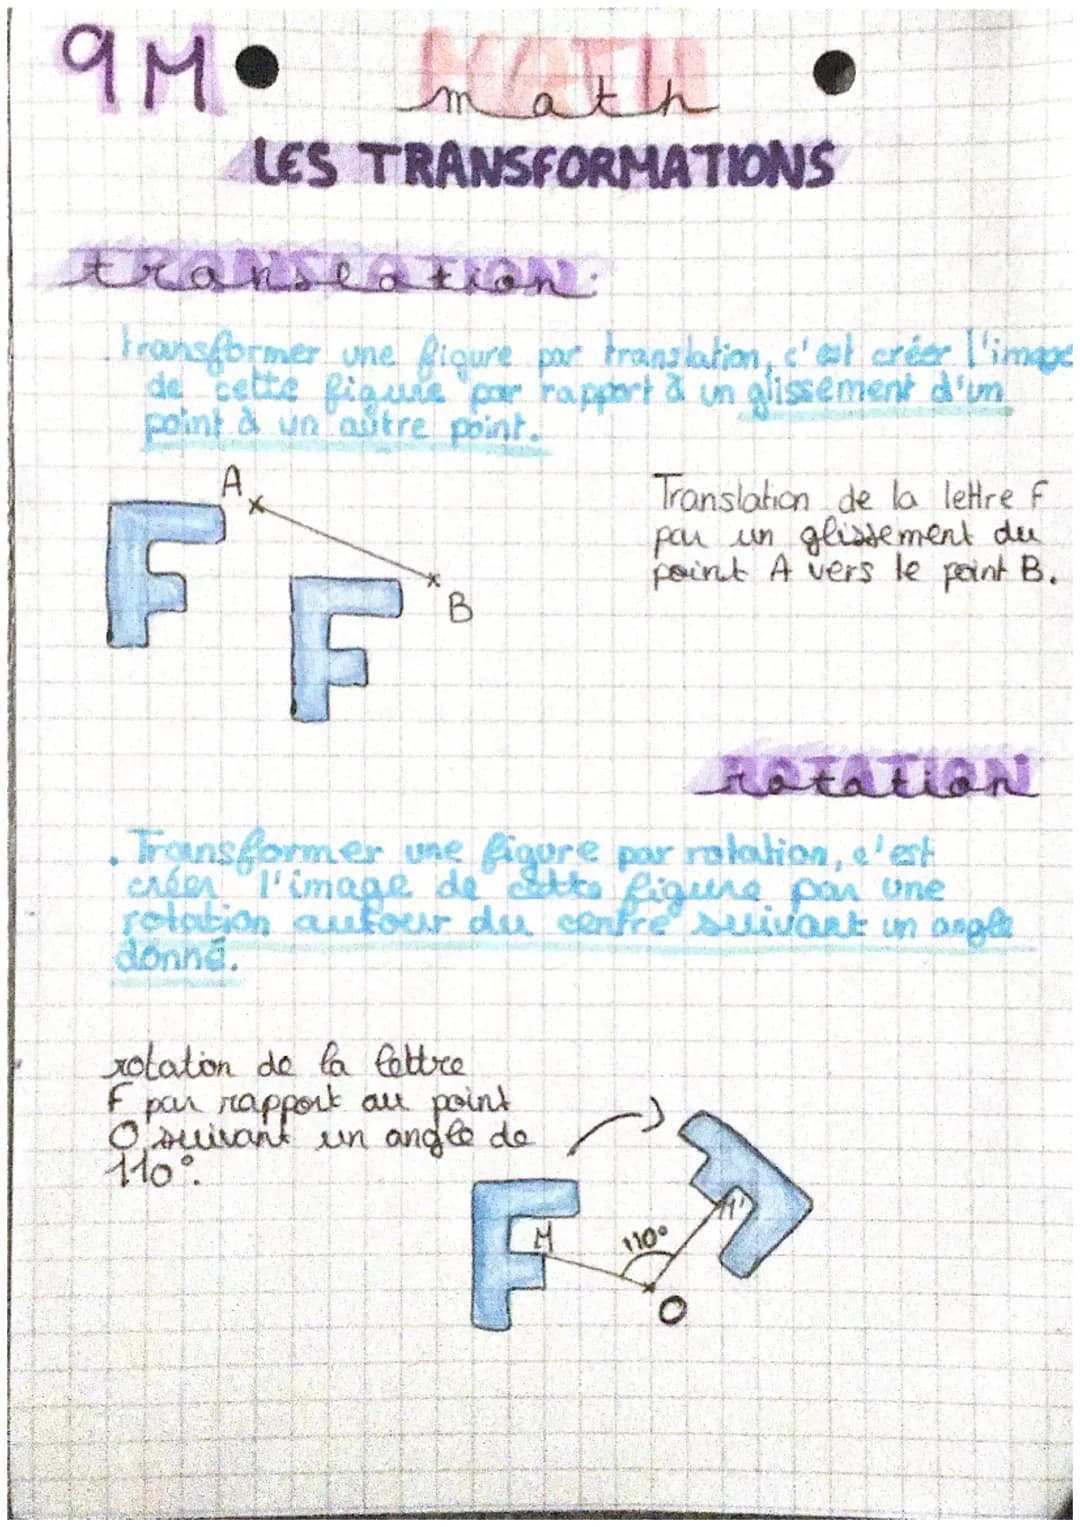 9M
MATH
math
LES TRANSFORMATIONS
translation:
. transformer une figure par translation, c'est créer l'image
de cette figure par rapport à un glissement d'un
point à un autre point.
A
B
Translation de la lettre F
par un glissement du
point A vers le point B.
rotation
. Transformer une figure par rotation, c'est
créer l'image de cette figure par une
rotation autour du centre suivant un angle
donné.
rotation de la lettre
F par rapport au point
O suivant un angle de
110°.
M
110°
M'
O